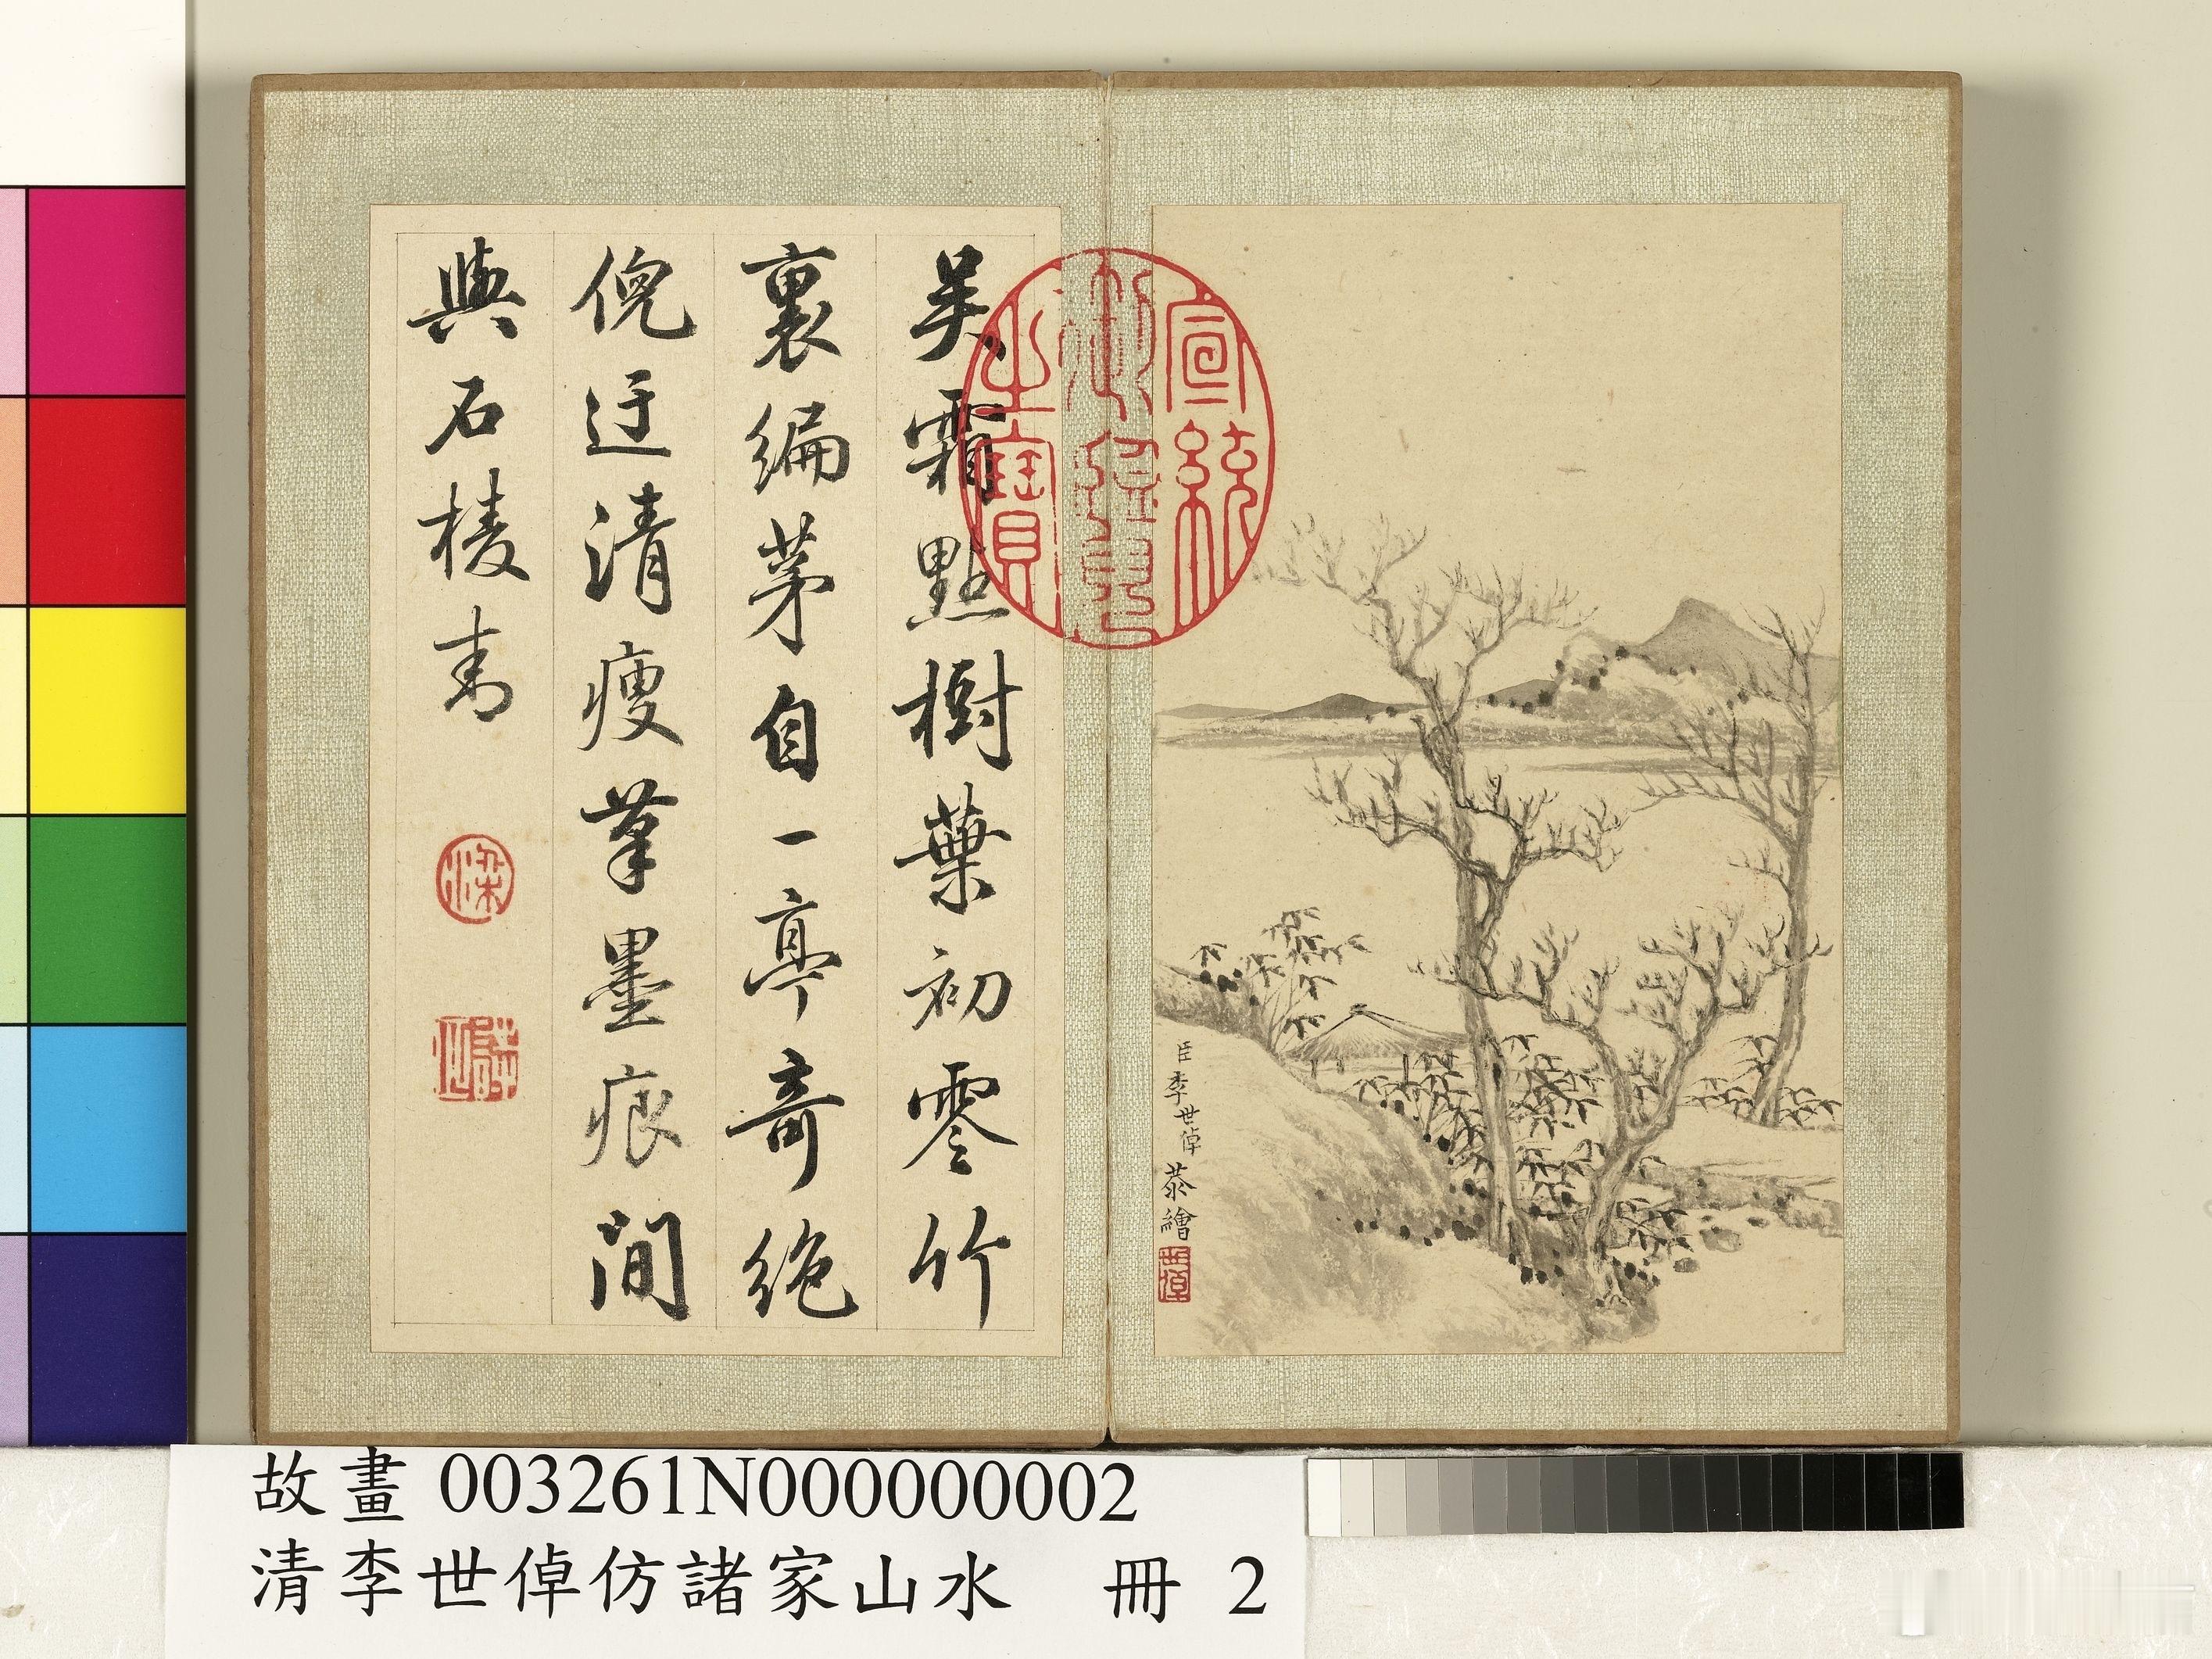 臣李世倬恭繪
世倬
宣統
御覽
之寶
吳霜點樹葉初零竹
裏編茅自一亭奇絶
倪迂清瘦筆墨痕間
與石棱青
梁
故畫 003261N000000002
清李世倬仿諸家山水 冊 2